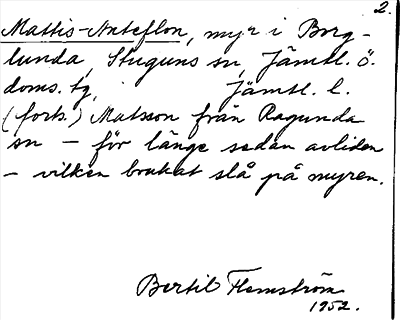 2.
Mattis-Anteflon, myr i Borg-
lunda, Stuguns sn, Jämtl. ö.
doms. tg, Jämtl. l.
(forts.) Matsson från Ragunda
sn – för länge sedan avliden
– vilken brukat slå på myren.
Bertil Flemström
1952.